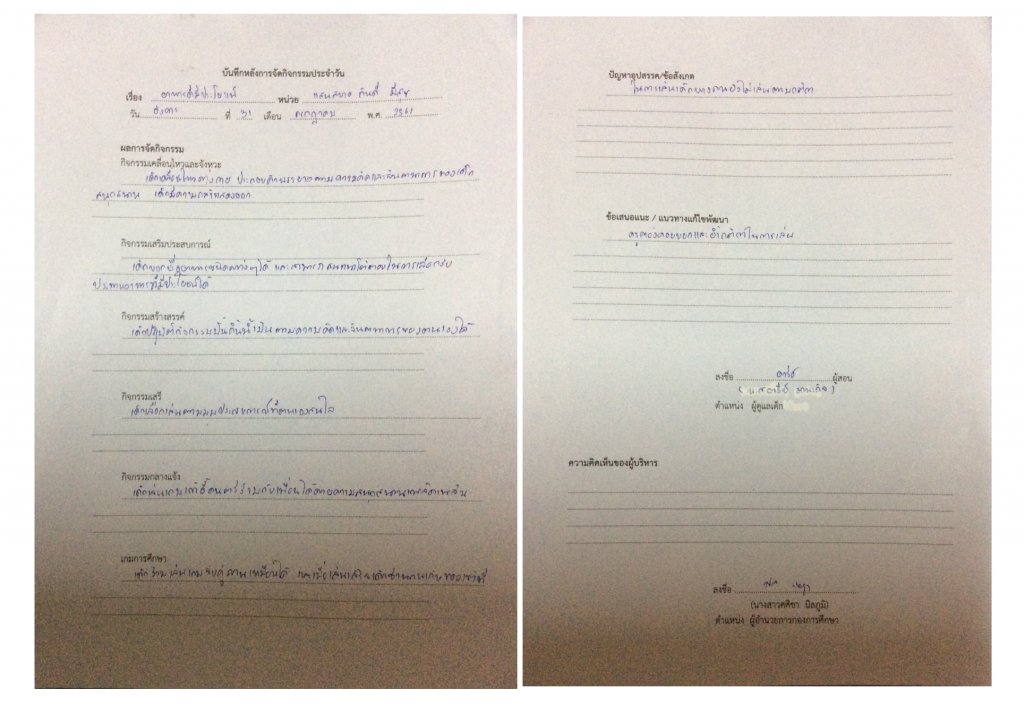 บันทึกหลังการจัดกิจกรรมประจำวัน
เรื่อง อาหารดีมีประโยชน์ หน่วย แสนสบาย กินดี มีสุข
วัน อังคาร ที่ 31 เดือน กรกฎาคม พ.ศ. 2561
ผลการจัดกิจกรรม
กิจกรรมเคลื่อนไหวและจังหวะ
เด็กเคลื่อนไหวร่างกาย ประกอบ ตามความคิดและจินตนาการของเด็ก
สนุกสนาน เด็กมีความกล้าแสดงออก
กิจกรรมเสริมประสบการณ์
เด็กบอกชื่ออาหารชนิดต่างๆได้ และสามารถสนทนาโต้ตอบในการเลือกรับ
ประทานอาหารที่มีประโยชน์ได้
กิจกรรมสร้างสรรค์
เด็กปฏิบัติกิจกรรมปั้นดินน้ำมันตามความคิดและจินตนาการของตนเองได้
กิจกรรมเสรี
เด็กเลือกเล่นตามมุมประสบการณ์ที่ตนเองสนใจ
กิจกรรมกลางแจ้ง
เด็กเล่นเกมเก้าอี้ดนตรีร่วมกับเพื่อนได้ด้วยความสนุกสนานเพลิดเพลิน
เกมการศึกษา
เด็กร่วมเล่นเกมจับคู่ภาพเหมือนได้ และเมื่อเล่นเสร็จเด็กช่วยกันเก็บของเข้าที่
ปัญหาอุปสรรค/ข้อสังเกต
ในการเล่นเด็กบางคนยังไม่เล่นตามกติกา
ข้อเสนอแนะ / แนวทางแก้ไขพัฒนา
ครูต้องคอยบอกและย้ำกติกาในการเล่น
ลงชื่อ ผู้สอน
ตำแหน่ง ผู้ดูแลเด็ก
ความคิดเห็นของผู้บริหาร
ลงชื่อ
(นางสาวศศิชา นิลภูมิ)
ตำแหน่ง ผู้อำนวยการกองการศึกษา